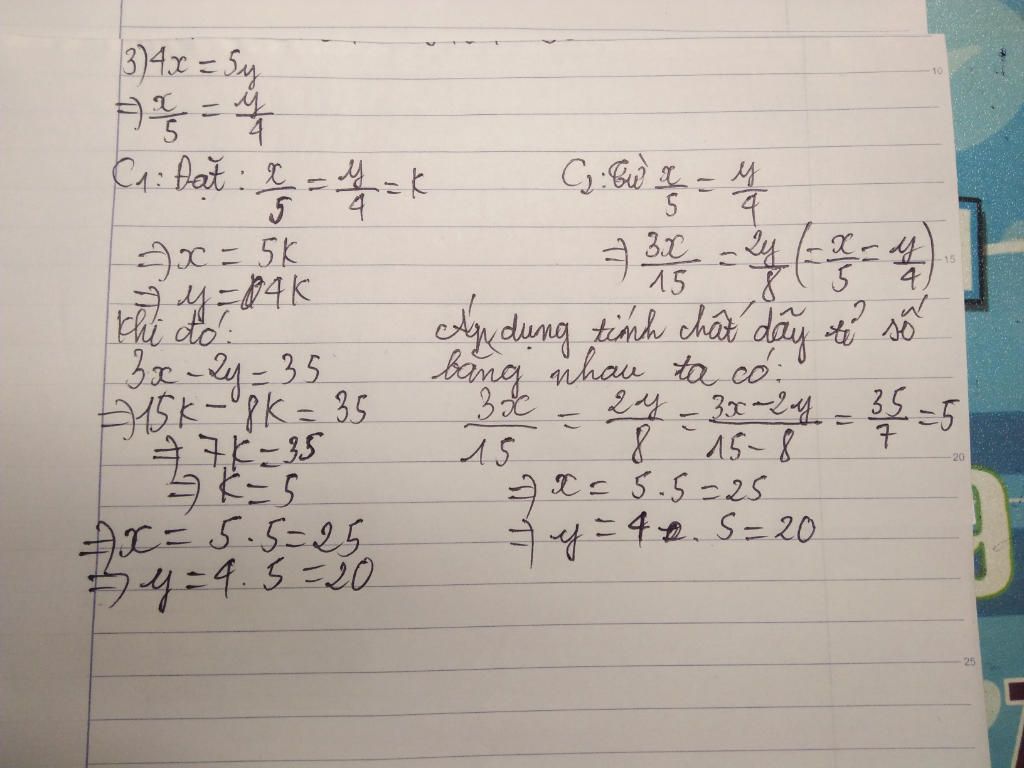 3) 4x = 5y
=> x/5 = y/4
C1: Đặt: x/5 = y/4 = k
=> x = 5k
=> y = 4k
Khi đó:
3x - 2y = 35
=> 15k - 8k = 35
=> 7k = 35
=> k = 5
=> x = 5.5 = 25
=> y = 4.5 = 20
C2: Từ x/5 = y/4
=> 3x/15 = 2y/8 (= x/5 = y/4)
Áp dụng tính chất dãy tỉ số
bằng nhau ta có:
3x/15 = 2y/8 = 3x-2y/15-8 = 35/7 = 5
=> x = 5.5 = 25
=> y = 4.5 = 20
10
15
20
25